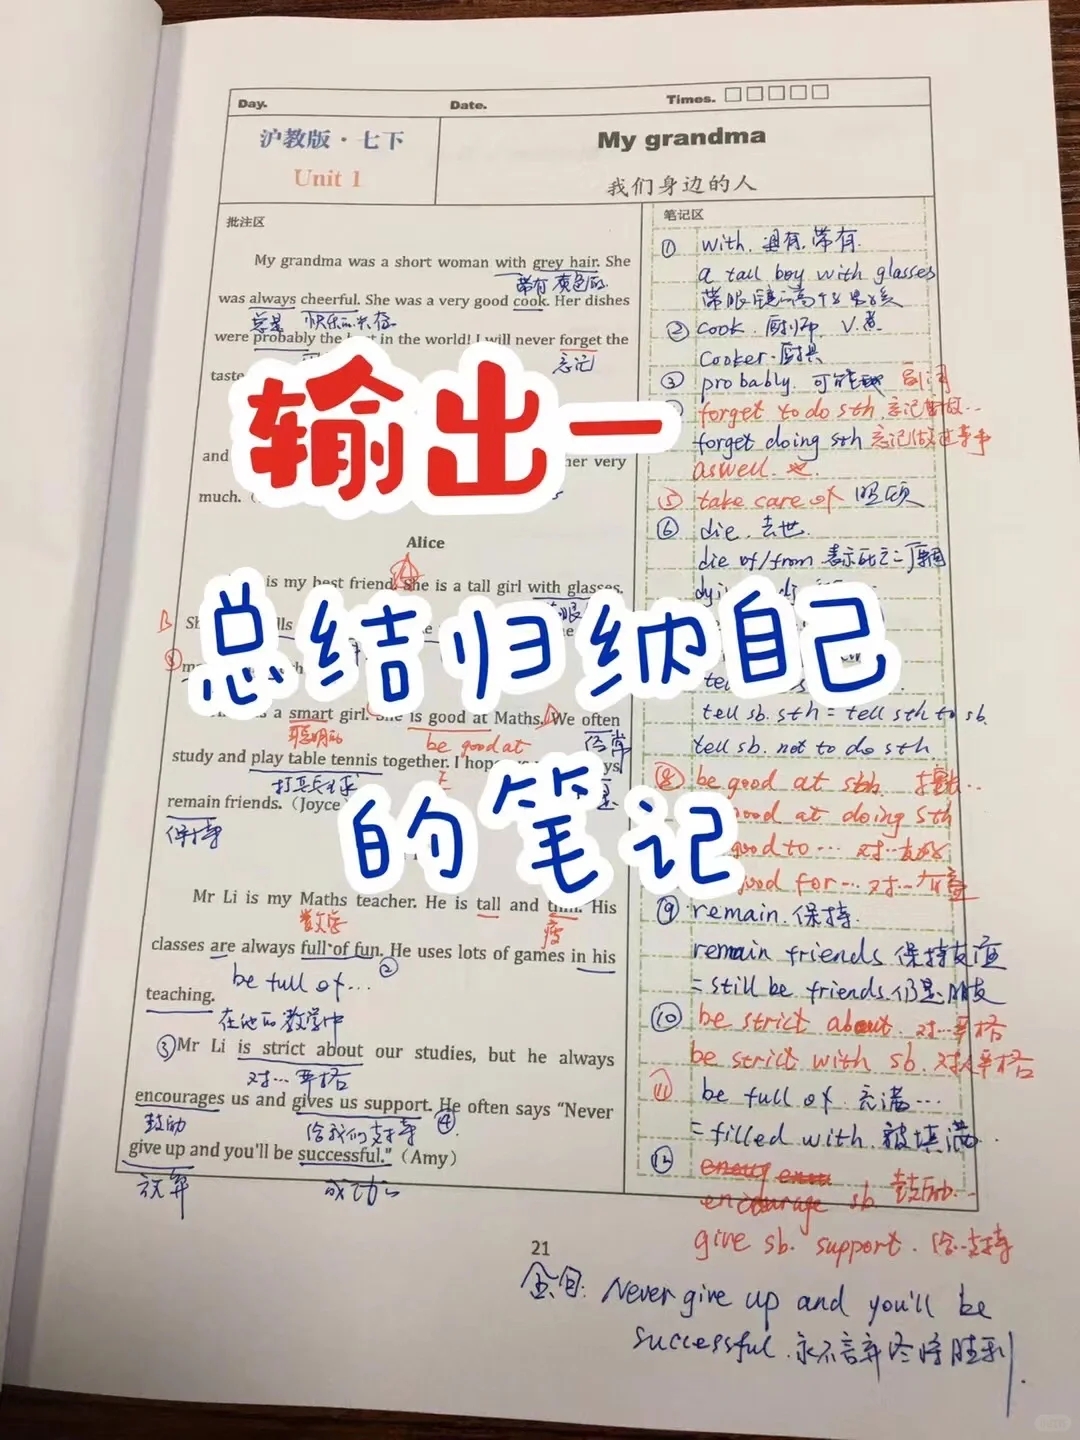 Day.
Date.
Times.
沪教版·七下
Unit 1
My grandma
我们身边的人
批注区
My grandma was a short woman with grey hair. She
带有
was always cheerful. She was a very good cook. Her dishes
总是
were probably the in the world! I will never forget the
忘记
taste
输出一
and her very
much.
Alice
is my best friend. She is a tall girl with glasses.
总结归纳自己
a smart girl. is good at Maths. We often
聪明的 be good at 经常
study and play table tennis together. I
打乒乓球
remain friends. (Joyce
保持
的笔记
Mr Li is my Maths teacher. He is tall and His
数学 瘦
classes are always full of fun. He uses lots of games in his
be full of... ②
teaching.
在他的教学中
③ Mr Li is strict about our studies, but he always
对...严格
encourages us and gives us support. He often says "Never
鼓励 给我们支持 ④
give up and you'll be successful." (Amy)
放弃 成功
笔记区
① with. 具有.带有.
a tall boy with glasses
② cook. 厨师 v.煮
cooker.厨具
③ probably. 可能 副词
forget to do sth.
forget doing sth 忘记做过某事
as well.
⑤ take care of 照顾
⑥ die. 去世.
die of/from
tell sb. sth = tell sth to sb.
tell sb. not to do sth
⑧ be good at sth.
good at doing sth
good to … 对…友好
good for … 对…有益
⑨ remain.保持.
remain friends 保持友谊
= still be friends.仍是朋友
⑩ be strict about. 对…严格
be strict with sb. 对人严格
⑪ be full of. 充满…
= filled with. 被填满.
⑫
encourage sb. 鼓励…
give sb. support. 给..支持
21
金句: Never give up and you'll be
successful.永不言弃终将胜利.